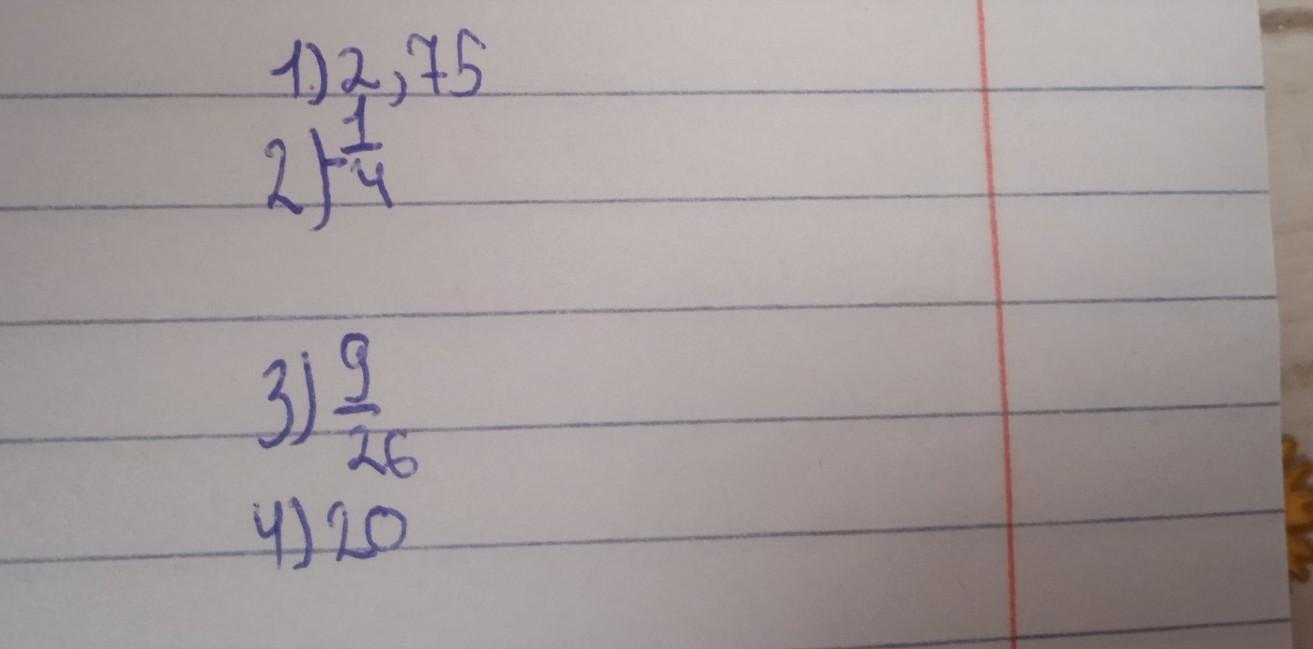 1) 2,75
2) -1/4
3) 9/26
4) 20